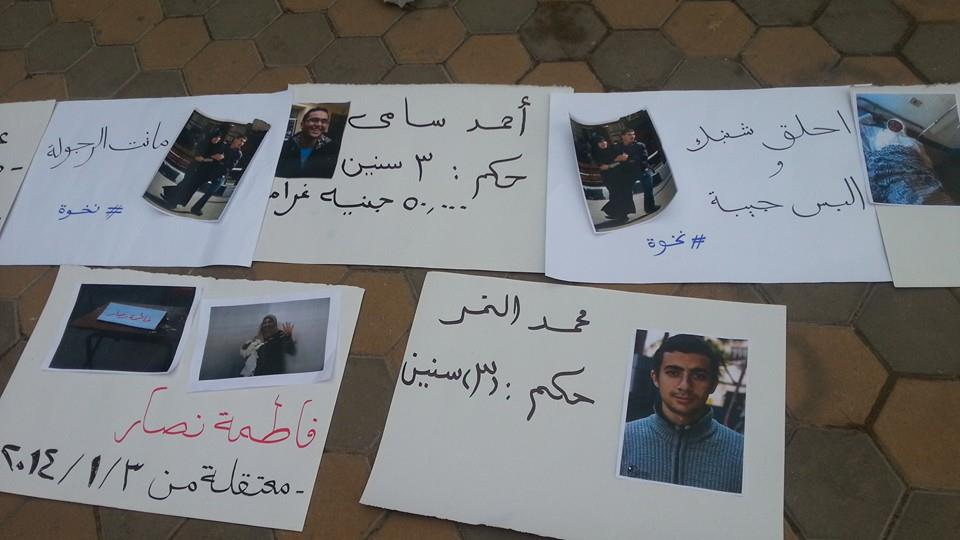 احلق شنبك
و
البس جيبة
#نخوة
أحمد سامى
حكم : ٣ سنين
٥٠,٠٠٠ جنيه غرامة
ماتت الرجولة
#نخوة
محمد النمر
حكم : (٣) سنين
فاطمة نصار
فاطمة نصار
- معتقلة من ٢٠١٤/١/٣